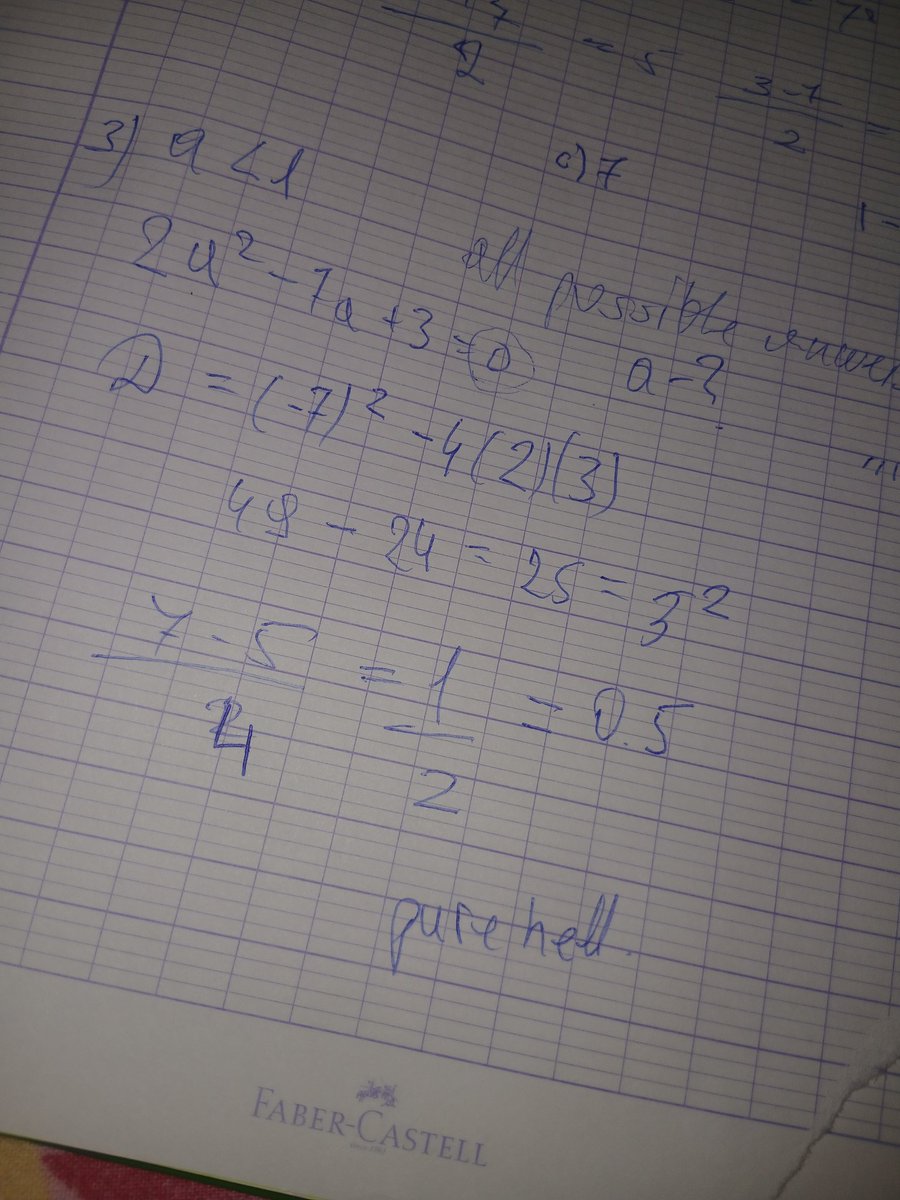 2 = 5
3-7
2 =
3) a < 1
c) 7
1-
2a² - 7a + 3 = 0
all possible
a - ?
D = (-7)² - 4(2)(3)
49 - 24 = 25 = 5²
7 - 5
4 = 1
2 = 0.5
pure hell
FABER-CASTELL